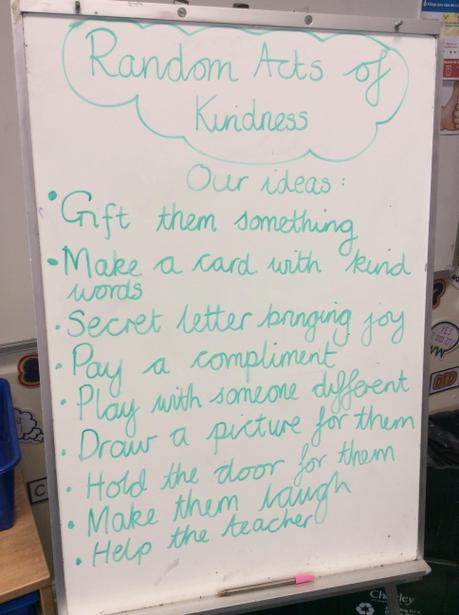 Random Acts of
Kindness
Our ideas:
• Gift them something
• Make a card with kind
words
• Secret letter bringing joy
• Pay a compliment
• Play with someone different
• Draw a picture for them
• Hold the door for them
• Make them laugh
• Help the teacher